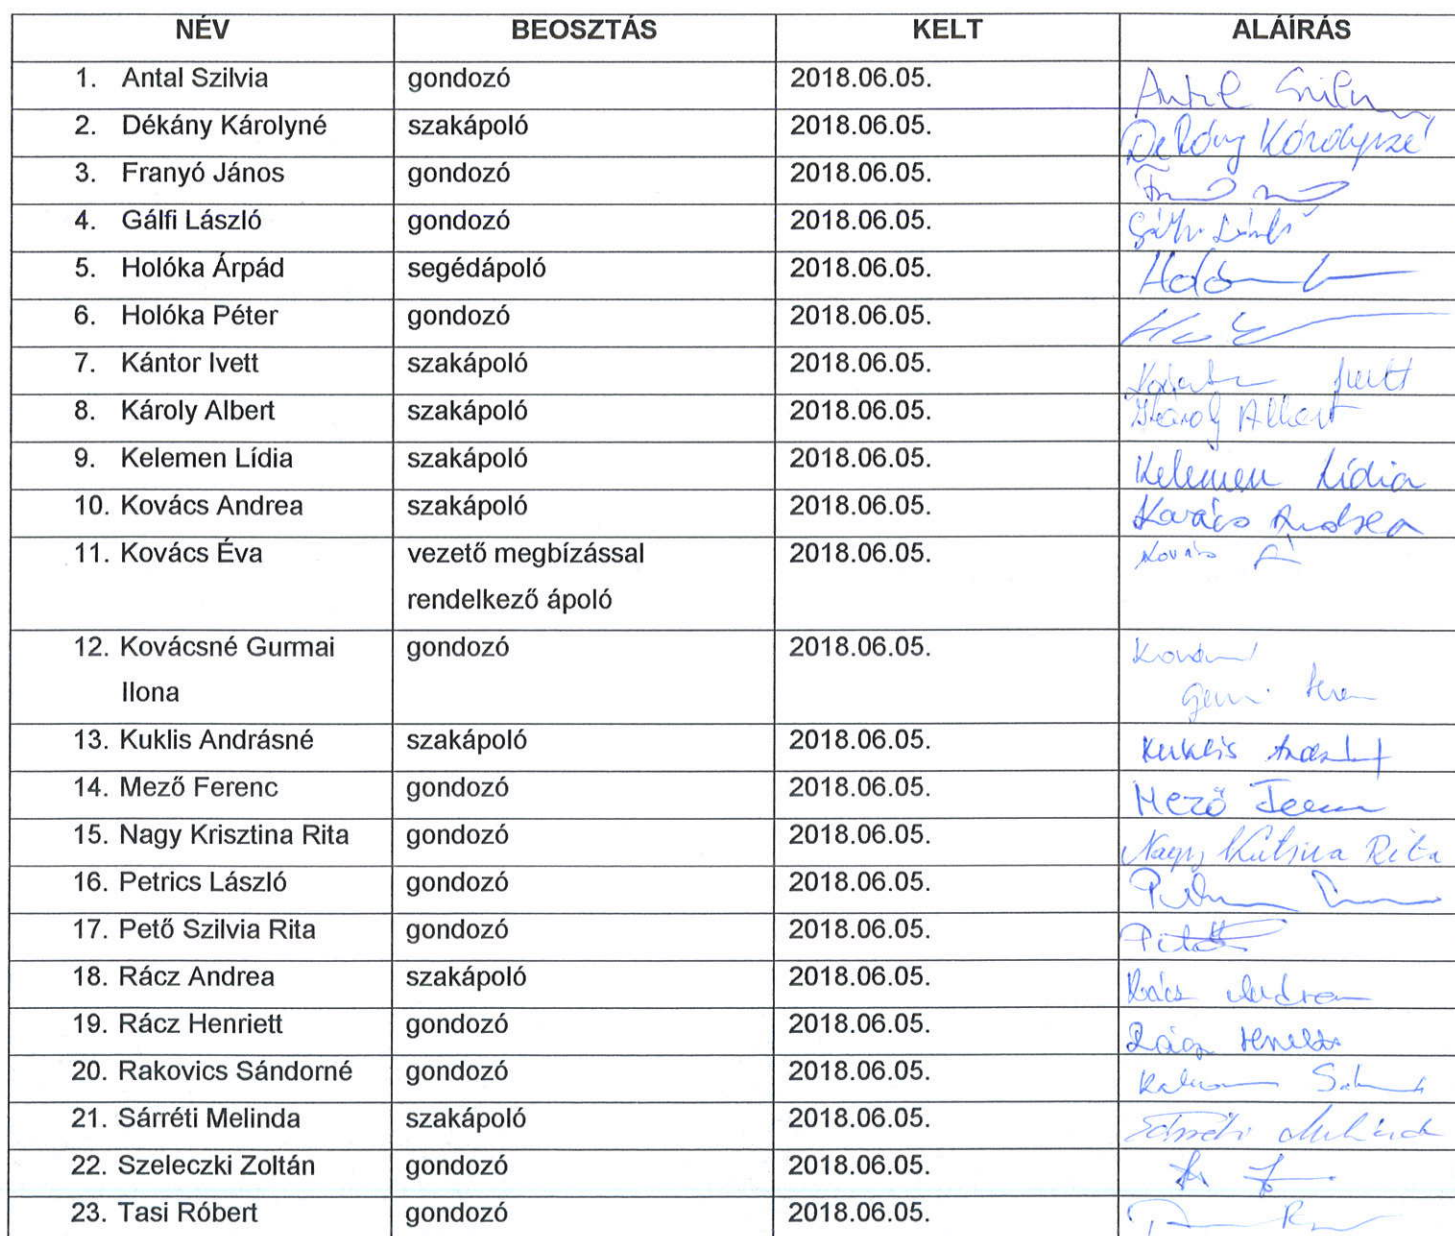 NÉV BEOSZTÁS KELT ALÁÍRÁS
1. Antal Szilvia gondozó 2018.06.05.
2. Dékány Károlyné szakápoló 2018.06.05. Dékány Károlyné
3. Franyó János gondozó 2018.06.05.
4. Gálfi László gondozó 2018.06.05.
5. Holóka Árpád segédápoló 2018.06.05.
6. Holóka Péter gondozó 2018.06.05.
7. Kántor Ivett szakápoló 2018.06.05.
8. Károly Albert szakápoló 2018.06.05. Károly Albert
9. Kelemen Lídia szakápoló 2018.06.05. Kelemen Lídia
10. Kovács Andrea szakápoló 2018.06.05. Kovács Andrea
11. Kovács Éva vezető megbízással 2018.06.05. Kovács É
rendelkező ápoló
12. Kovácsné Gurmai gondozó 2018.06.05.
Ilona
13. Kuklis Andrásné szakápoló 2018.06.05. Kuklis
14. Mező Ferenc gondozó 2018.06.05. Mező
15. Nagy Krisztina Rita gondozó 2018.06.05. Nagy Krisztina Rita
16. Petrics László gondozó 2018.06.05.
17. Pető Szilvia Rita gondozó 2018.06.05.
18. Rácz Andrea szakápoló 2018.06.05. Rácz Andrea
19. Rácz Henriett gondozó 2018.06.05. Rácz Henriett
20. Rakovics Sándorné gondozó 2018.06.05.
21. Sárréti Melinda szakápoló 2018.06.05. Sárréti Melinda
22. Szeleczki Zoltán gondozó 2018.06.05.
23. Tasi Róbert gondozó 2018.06.05.